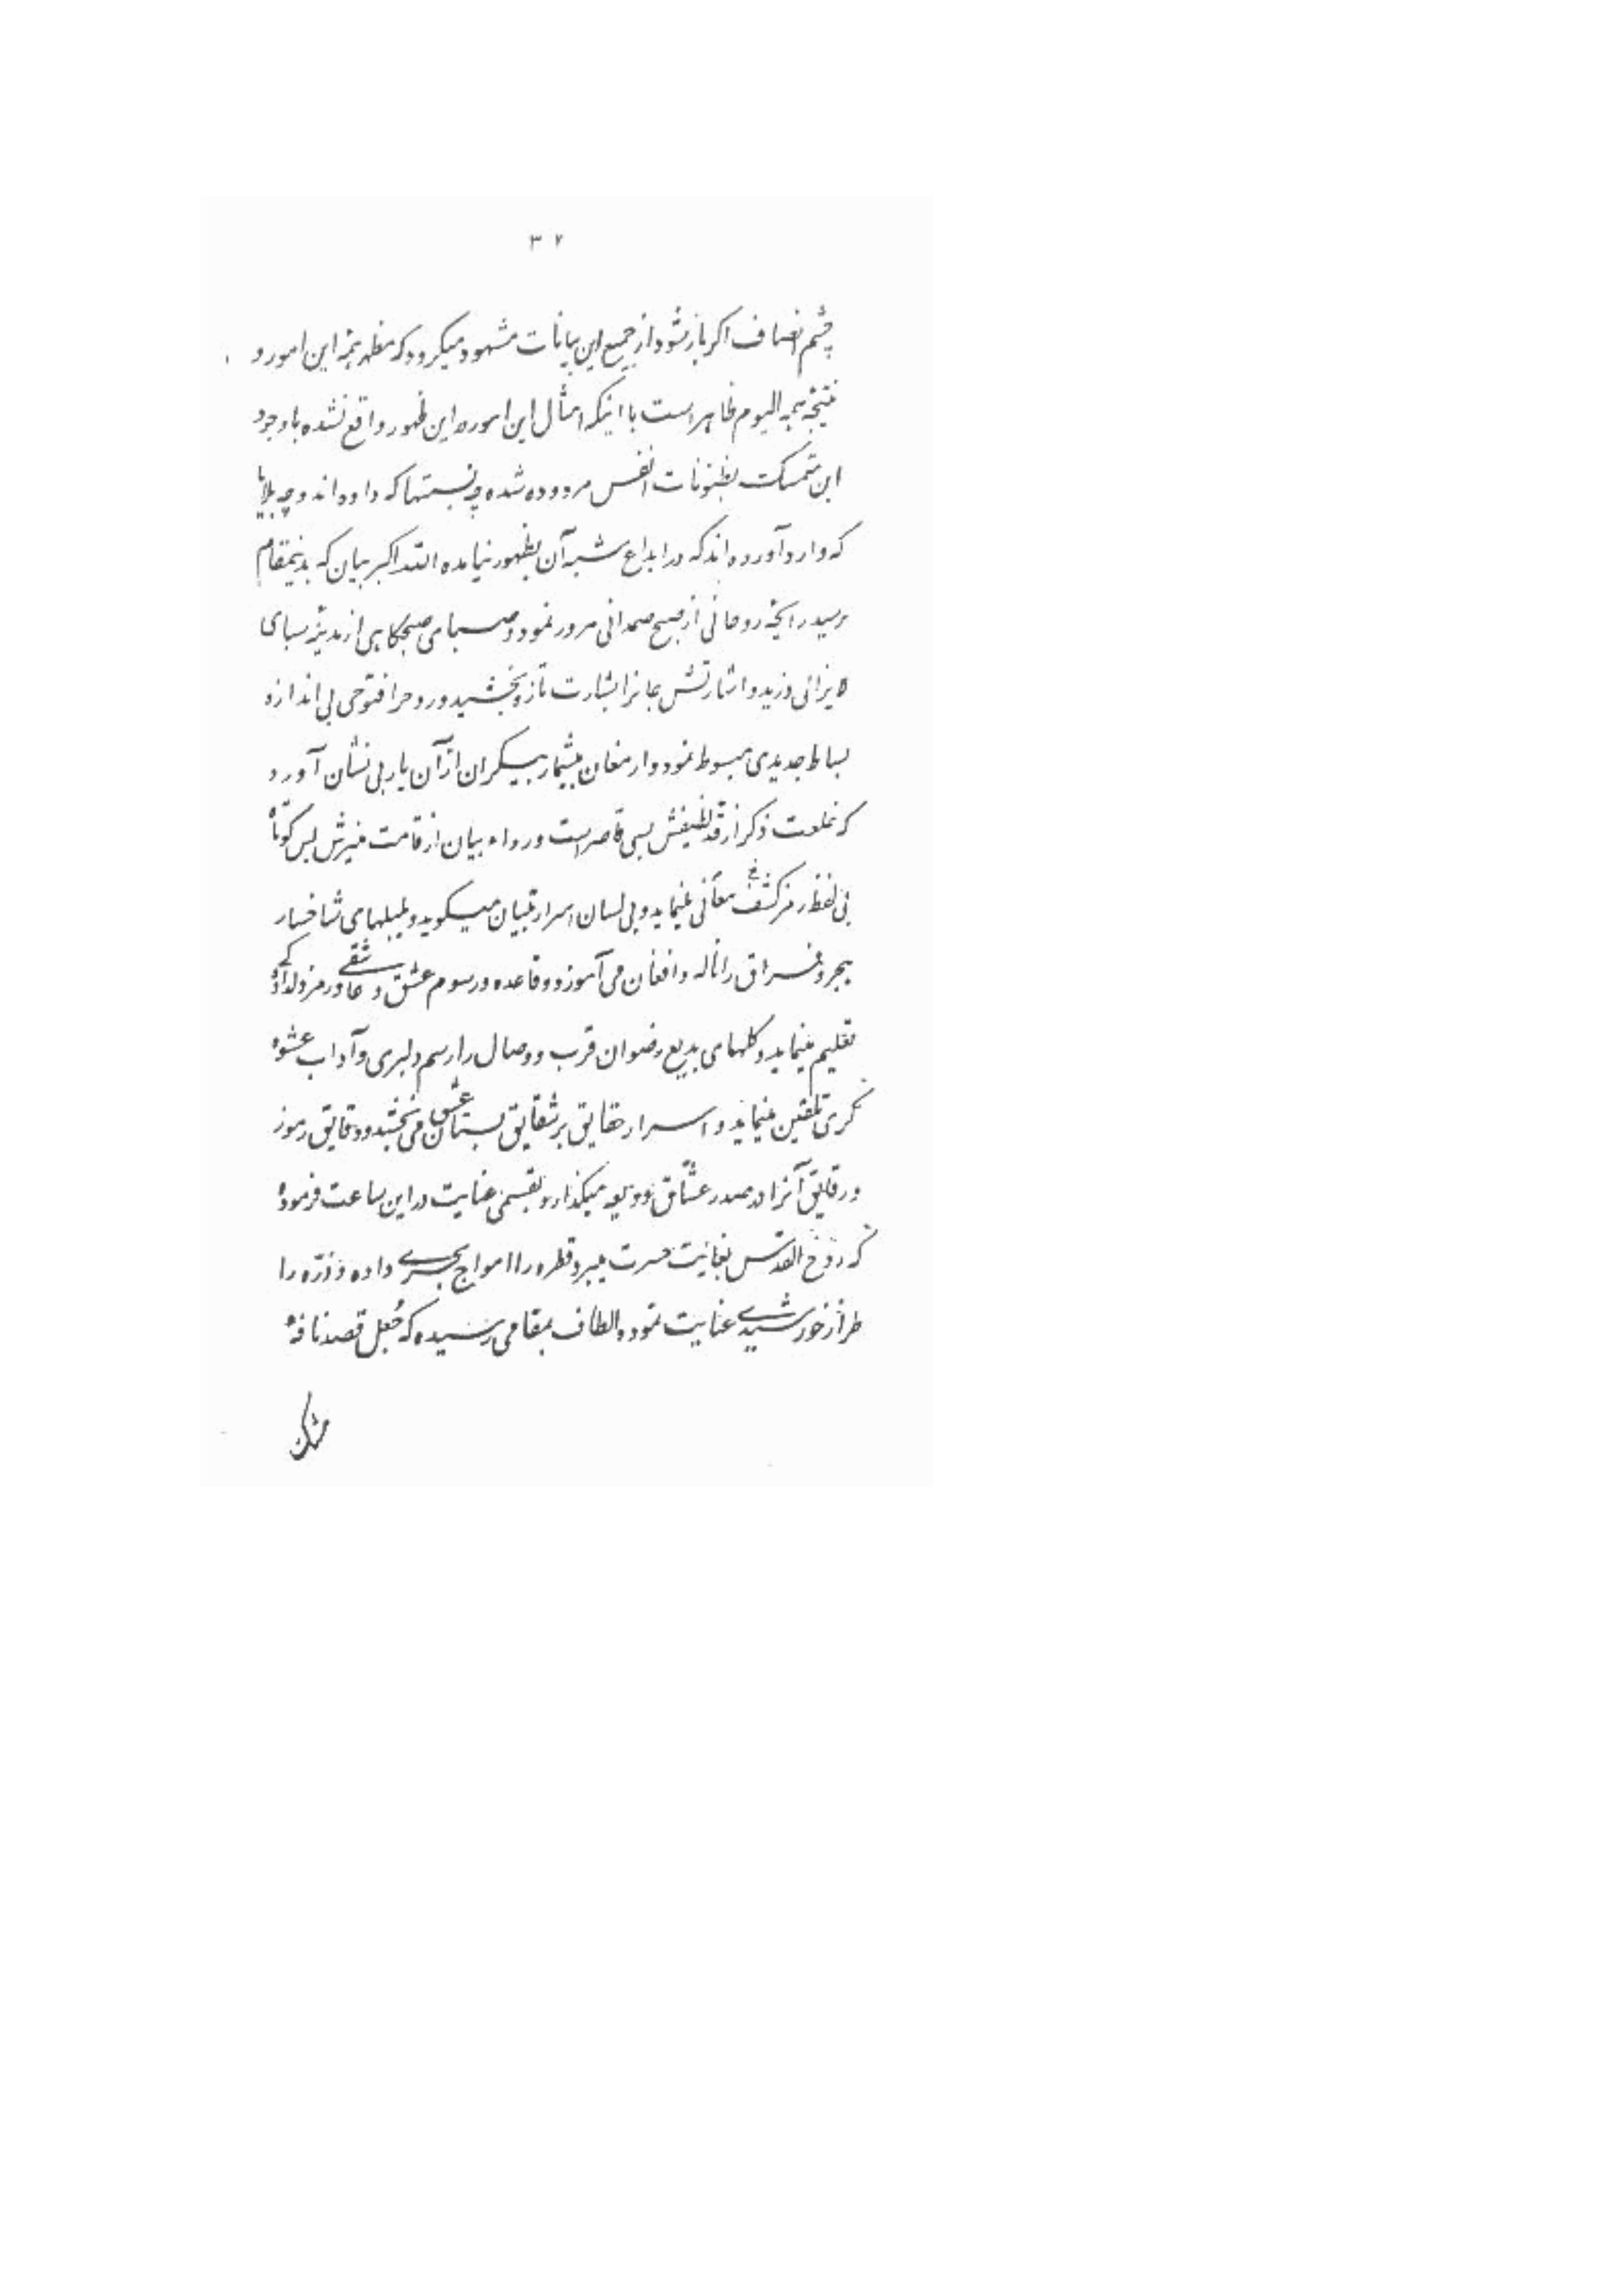 ۳۷
چشم انصاف اکر باز شود از جمیع این بیانات مشهود میکرود که مظهر همهٔ این امور و
نتیجهٔ همه الیوم ظاهر است با اینکه امثال این امور در این ظهور واقع نشده با وجود
این متمسک بظنونات انفس مردوده شده چه نسبتها که داده‌اند و چه بلایا
که وارد آورده‌اند که در ابداع شبه آن بظهور نیامده الله اکبر بیان که بدینمقام
رسید رائحهٔ روحانی از صبح صمدانی مرور نمود و صبای صبحکاهی از مدینهٔ سبای
لایزالی وزید و اشارتش جانرا بشارت تازه بخشید و روحرا فتوحی بی اندازه
بساط جدیدی مبسوط نمود و ارمغان بیشمار بیکران از آن یار بی نشان آورد
که خلعت ذکر از قدّ لطیفش بسی قاصر است و رداء بیان از قامت منیرش بس کوتاه
بی لفظ رمز معانی کشف مینماید و بی لسان اسرار تبیان میکوید و بلبلهای شاخسار
هجر و فراق را ناله و افغان می‌آموزد و قاعده و رسوم عشق و عاشقی و رمز دلدادکی
تعلیم مینماید و کلهای بدیع رضوان قرب و وصال را رسم دلبری و آداب عشوه
کری تلقین مینماید و اسرار حقایق بر شقایق بستان عشق می‌بخشد و دقایق رموز
و رقایق آنرا در صدر عشّاق ودیعه میکذارد بقسمی عنایت در این ساعت فرموده
که روح القدس بغایت حسرت میبرد قطره را امواج بحری داده و ذرّه را
طراز خورشیدی عنایت نموده الطاف بمقامی رسیده که جُعل قصد نافهٔ
مشک